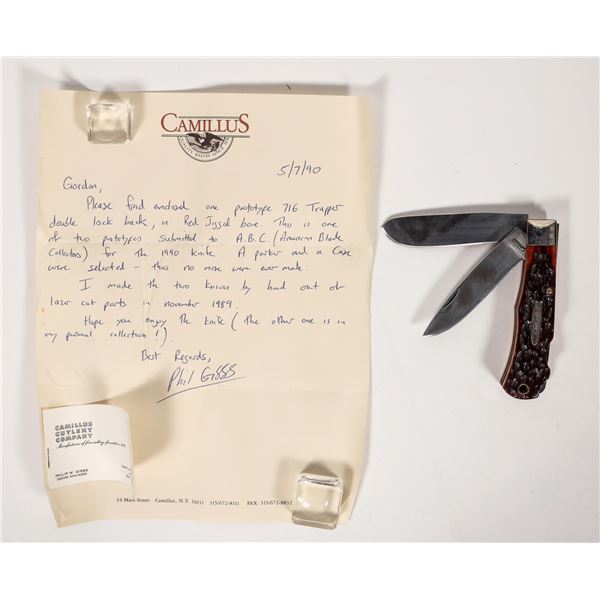 CAMILLUS
5/7/90
Gordon,
Please find enclosed one prototype 716 Trapper
double lock back, in Red Jigged bone. This is one
of two prototypes submitted to A.B.C. (American Blade
Collectors) for the 1990 knife. A parker and a Case
were selected - thus no more were ever made.
I made the two knives by hand out of
lazer cut parts in november 1989.
Hope you enjoy the knife (the other one is in
my personal collection!).
Best Regards,
Phil Gibbs
CAMILLUS
CUTLERY
COMPANY
PHILIP W. GIBBS
DESIGN ENGINEER
54 Main Street Camillus, N.Y. 13031 315/672-8111 FAX: 315/672-8832